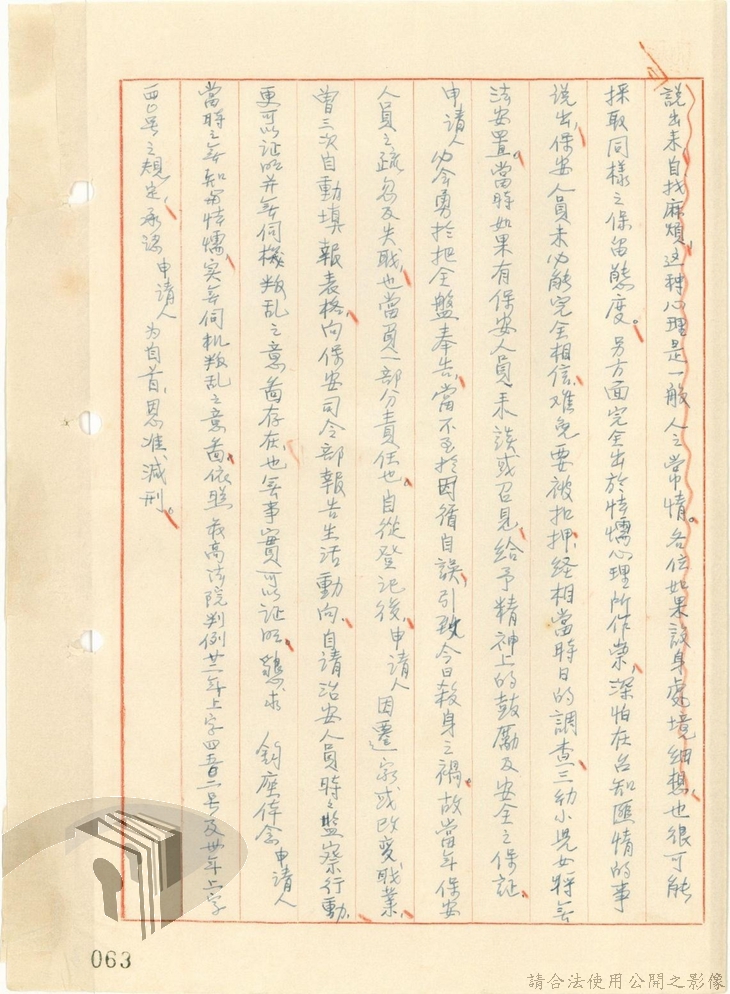 說出來自找麻煩，这种心理是一般人之常情。各位如果設身處境細想，也很可能
採取同樣之保留態度。另方面完全出於怯懦心理所作祟，深怕在台知匪情的事
說出，保安人員未必能完全相信，难免要被扣押，経相當時日的調查，三幼小児女將無
法安置。當時如果有保安人員来談或召見，給予精神上的鼓勵及安全之保証，
申請人必会勇於把全盤奉告，當不至於因循自誤，引致今日殺身之禍。故當年保安
人員之疏忽及失职，也當負一部分責任也，自從登記後，申請人因遷家或改变職業，
曾三次自動填報表格，向保安司令部報告生活動向，自請治安人員時々監察行動，
更可以証明并無伺機叛乱之意啚存在也，無事實可以証明，懇求　鈞座倖念　申請人
當時之無知与怯懦，实無伺机叛乱之意啚，依照最高法院判例廿二年上字四五二号及卅年上字
四〇号之規定，承認　申請人　为自首，恩准減刑。
063
請合法使用公開之影像